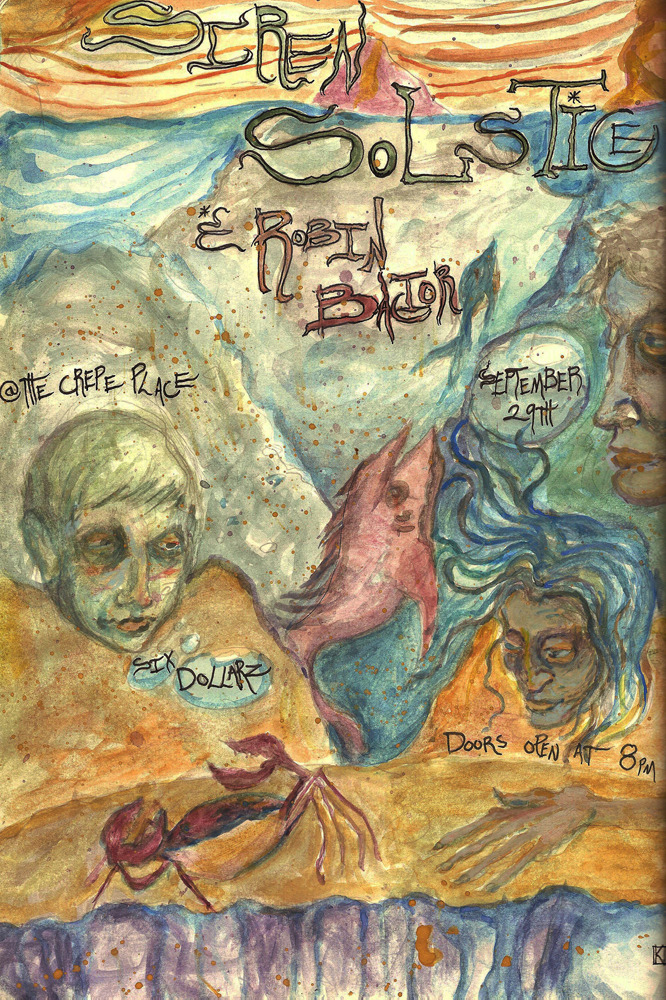 SIREN
SOLSTICE
& ROBIN
BACIOR
@ THE CREPE PLACE
SEPTEMBER
29TH
SIX DOLLARZ
DOORS OPEN AT 8PM
K